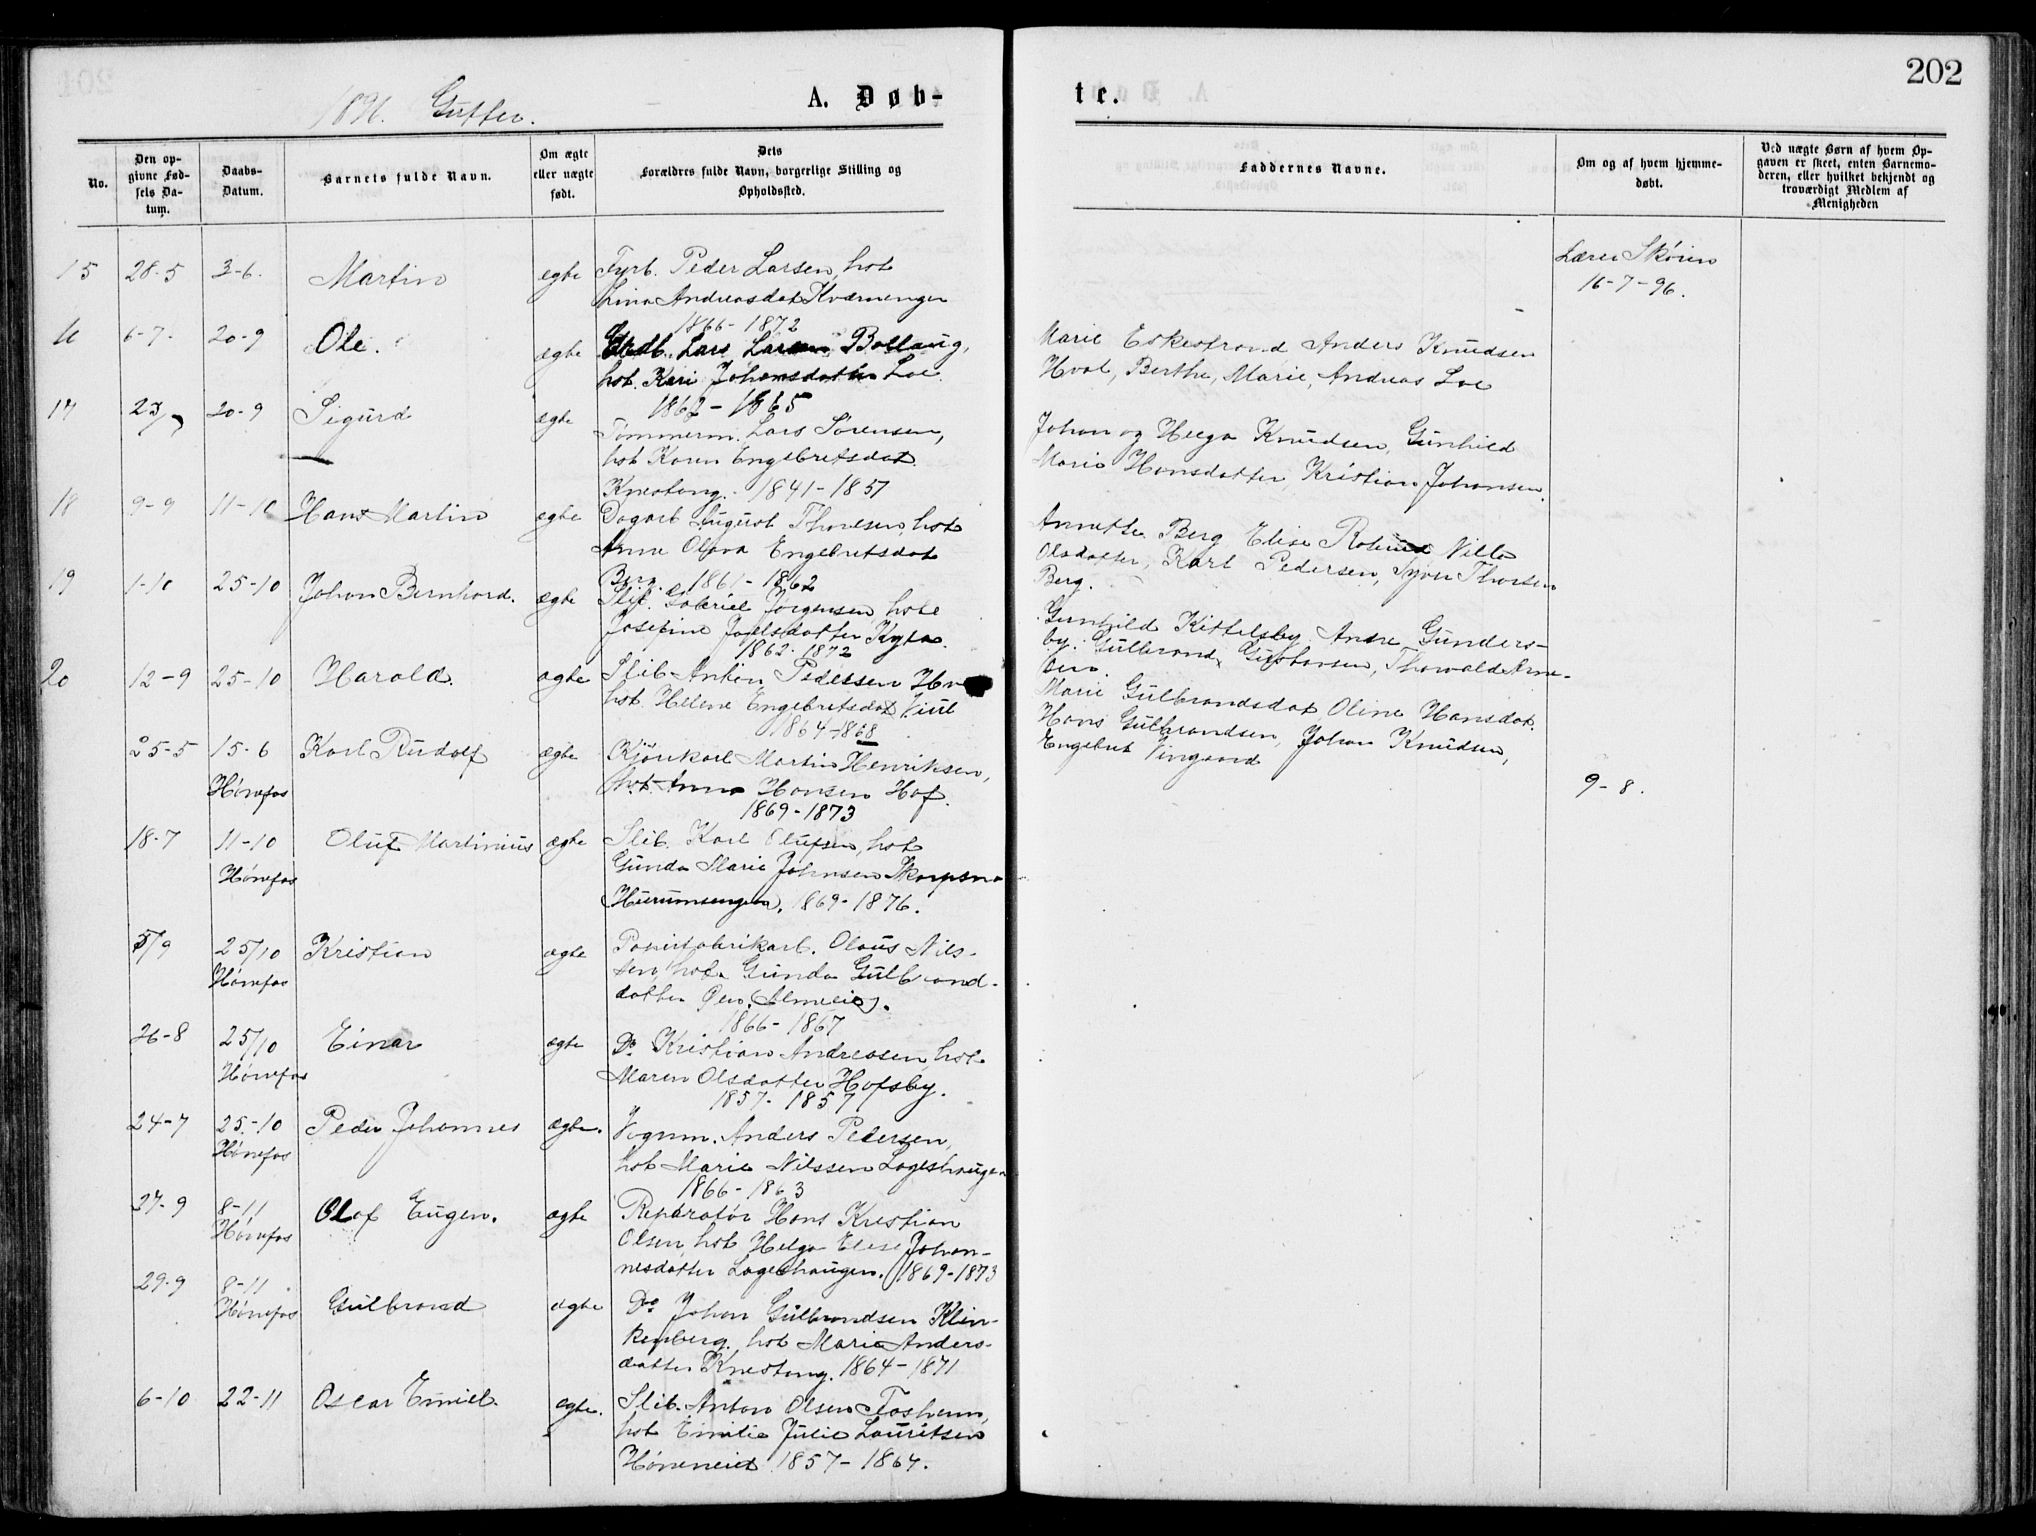 202
1896. Gutter.
A. Døb-
te.
No.
Den op-
givne Fød-
sels Da-
tum.
Daabs-
Datum.
Barnets fulde Navn.
Om ægte
eller uægte
født.
Dets
Forældres fulde Navn, borgerlige Stilling og
Opholdssted.
Faddernes Navne.
Om og af hvem hjemme-
døbt.
Ved uægte Børn af hvem Op-
gaven er skeet, enten Barnemo-
deren, eller hvilket bekjendt og
troværdigt Medlem af
Menigheden
15 28-5 3-6. Martin egte Fyrb. Peder Larsen, hst
Lina Andreasdat Kværnengen
1866-1872
Lærer Skøien
16-7-96.
16 6-7- 20-9 Ole. ægte Lars Larsen Bollaug,
hst. Kari Johansdatter Loe.
1862-1865
Marie Eskestrand Anders Knudsen
Hval, Berthe, Marie, Andreas Loe
17 23/7 20-9 Sigurd egte Tømmerm. Lars Sørensen,
hst Karen Engebretsdat.
Knestang. 1841-1857
Johan og Helga Knudsen, Gunhild
Marie Hansdatter, Kristian Johansen.
18 9-9 11-10 Hans Martin egte Dagarb August Thoresen, hst
Anne Olava Engebretsdat
Berg. 1861-1862
Annette Berg Elise Nille
Olsdatter, Karl Pedersen, Syver Thoresen
Berg.
19 1-10 25-10 Johan Bernhard. ægte Slib. Gabriel Jørgensen, hst
Josefine Joelsdatter
1862-1872
Gunhild Kittelsby Anne Gunders-
by. Gulbrand Gustavsen, Thorvald Arne-
sen.
20 12-9 25-10 Harald. ægte Slib. Anton Pedersen
hst. Helene Engebretsdat Viul
1864-1868
Marie Gulbrandsdat, Oline Hansdat.
Hans Gulbrandsen, Johan Knudsen,
Engebret Vingaard
25-5 15-6 Karl Rudolf ægte Kjørekarl Martin Henriksen,
Hønefos hst. Anna Hansen Hof.
1869-1873
9-8.
18-7 11-10 Oluf Martinius ægte Slib. Karl Olufsen, hst
Hønefos Gunda Marie Johnsen Skarpsno
Hurumsengen. 1869-1876.
5/9 25/10 Kristian ægte Papirfabrikarb. Olaus Nils-
Hønefos sen, hst. Gunda Gulbrand-
datter Øen. (Almeie).
1866-1867
26-8 25/10 Einar ægte Do Kristian Andreasen, hst
Hønefos Maren Olsdatter Hofsby.
1857-1857
24-7 25-10 Peder Johannes ægte. Vognm. Anders Pedersen,
Hønefos hst Marie Nilssen Lageshaugen
1866-1863
27-9 8-11 Olaf Eugen. ægte Reparatør Hans Kristian
Hønefos Olsen, hst Helga Elise Johan-
nesdatter Lageshaugen. 1869-1873
29-9 8-11 Gulbrand ægte Do Johan Gulbrandsen Klin-
Hønefos kenberg, hst Marie Anders-
datter Knestang. 1864-1871
6-10 22-11 Oscar Emiel. egte. Slib. Anton Olsen Fosheim,
hst Emilie Julie Lauritsen
Høneneiet 1857-1864.